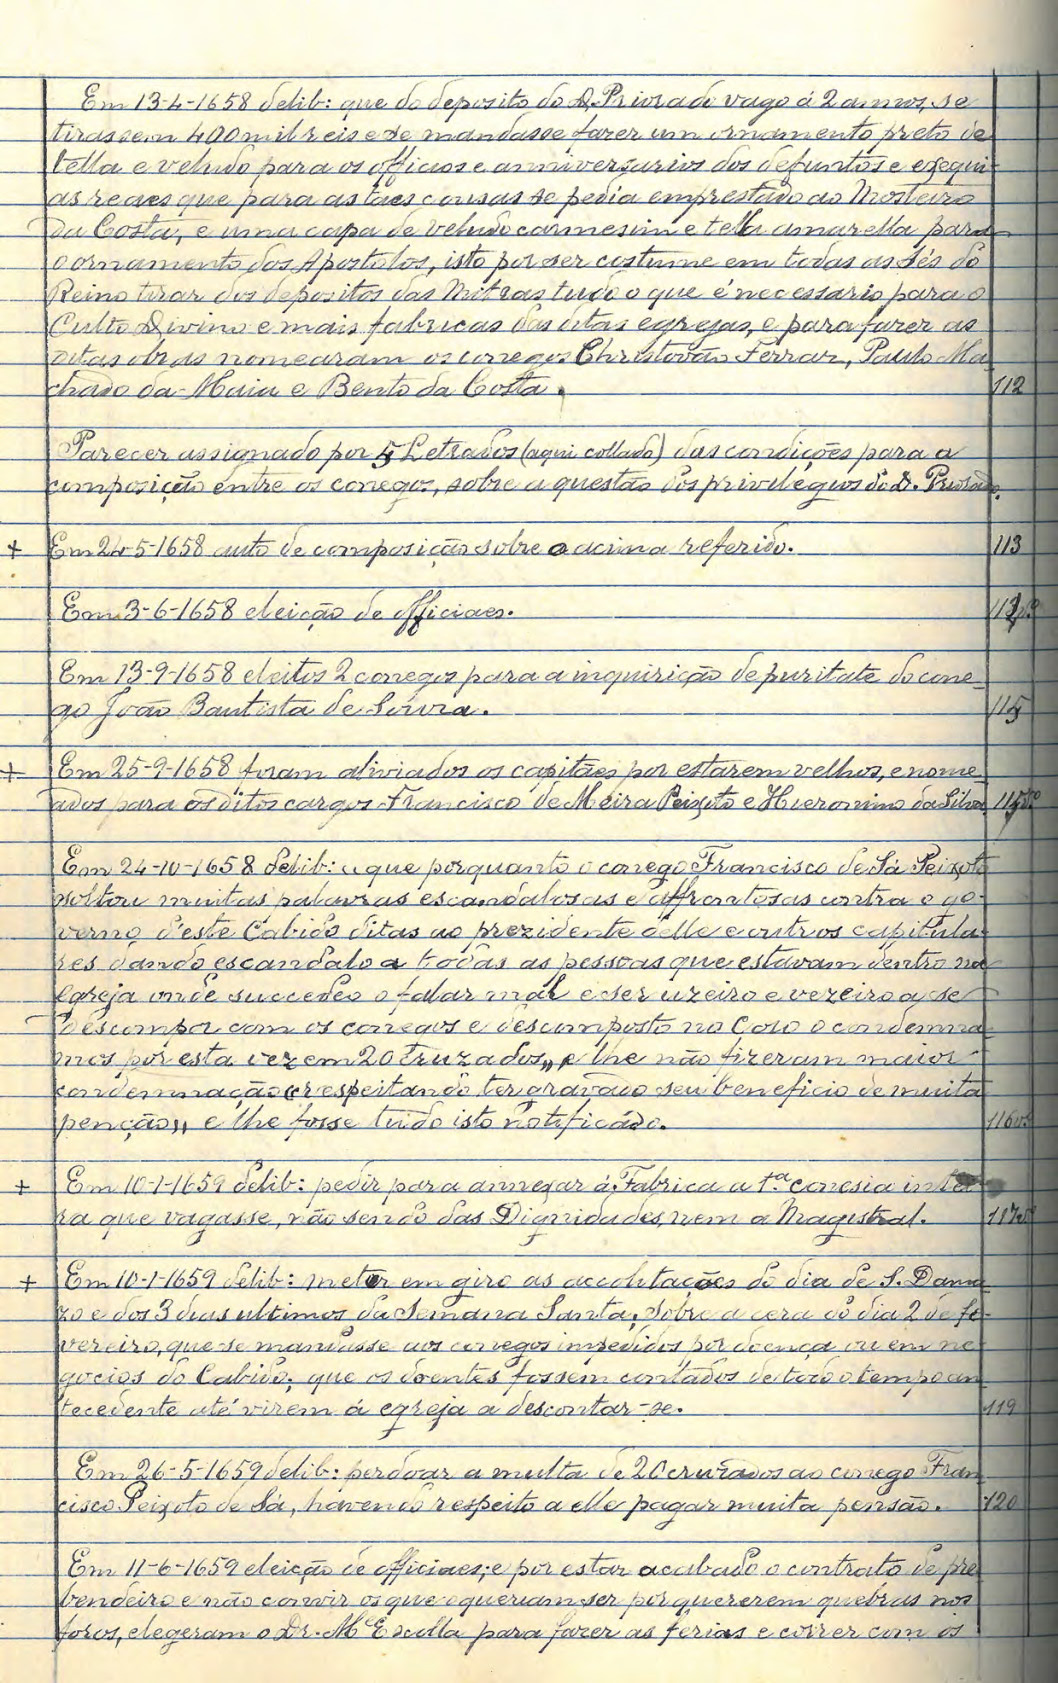 Em 13-4-1658 delib: que do deposito do D. Priorado vago á 2 annos, se
tirassem 400 mil reis e se mandasse fazer um ornamento preto de
tella e veludo para os officios e anniversarios dos defuntos e exequi-
as reaes que para as taes cousas se pedia emprestado ao Mosteiro
da Costa, e uma capa de veludo carmesim e tella amarella para
o ornamento dos Apostolos, isto por ser costume em todas as Sés do
Reino tirar dos depositos das Mitras tudo o que é necessario para o
Culto Divino e mais fabricas das ditas egrejas, e para fazer as
ditas obras nomearam os conegos Christovão Ferrar, Paulo Ma-
chado da Maia e Bento da Costa. 112
Parecer assignado por 5 Letrados (aqui collado) das condições para a
composição entre os conegos, sobre a questão dos privilegios do D. Priorado.
+ Em 24-5-1658 auto de composição sobre o acima referido. 113
Em 3-6-1658 eleição de officiaes.
Em 13-9-1658 eleitos 2 conegos para a inquirição de puritate do cone-
go João Bautista de Souza. 115
+ Em 25-9-1658 foram aliviados os capitães por estarem velhos, e nome-
ados para os ditos cargos Francisco de Meira Peixoto e Hieronimo da Silva 115vº
Em 24-10-1658 delib: a que porquanto o conego Francisco de Sá Peixoto
soltou muitas palavras escandalosas e affrontosas contra o go-
verno d'este Cabido ditas ao prezidente delle e outros capitula-
res dando escandalo a todas as pessoas que estavam dentro na
egreja onde succedeo o falar mal e ser uzeiro e vezeiro a se
descompor com os conegos e descomposto no Coro o condemna-
mos por esta vez em 20 cruzados,, e lhe não fizeram maior
condemnação (respeitando ter gravado seu beneficio de muita
penção,, e lhe fosse tudo isto notificado. 116vº
+ Em 10-1-1659 delib: pedir para annexar á Fabrica a 1.ª conesia intei-
ra que vagasse, não sendo das Dignidades, nem a Magistral. 117vº
+ Em 10-1-1659 delib: meter em giro as accolitações do dia de S. Dama-
zo e dos 3 dias ultimos da Semana Santa; sobre a cera do dia 2 de fe-
vereiro, que se mandasse aos conegos impedidos por doença ou em ne-
gocios do Cabido; que os doentes fossem contados de todo o tempo an-
tecedente até virem á egreja a descontar-se. 119
Em 26-5-1659 delib: perdoar a multa de 20 cruzados ao conego Fran-
cisco Peixoto de Sá, havendo respeito a elle pagar muita pensão. 120
Em 11-6-1659 eleição de officiaes; e por estar acabado o contrato de pre-
bendeiro e não convir os que o queriam ser por quererem quebras nos
foros, elegeram o Dr. Mel Escolla para fazer as ferias e correr com os